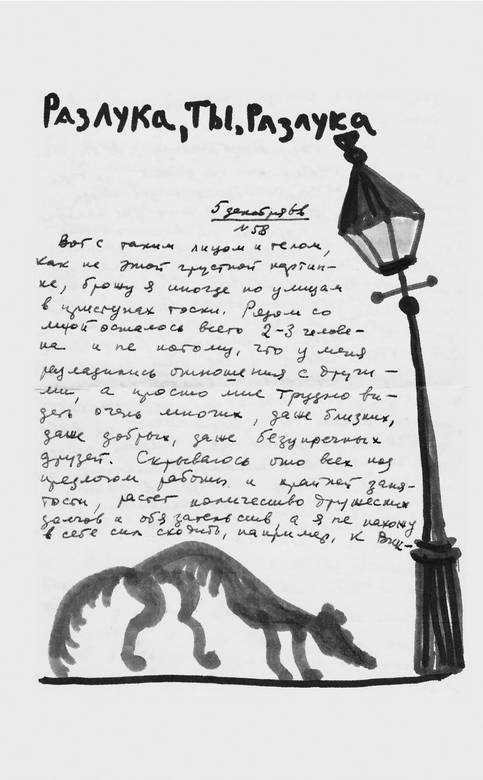 РАЗЛУКА, ТЫ, РАЗЛУКА
5 декабря 66
N 58
Вот с таким лицом и телом,
как не этой грустной картин-
ке, брожу я иногда по улицам
в приступах тоски. Рядом со
мной осталось всего 2-3 челове-
ка и не потому, что у меня
разладились отношения с други-
ми, а просто мне трудно ви-
деть очень многих, даже близких,
даже добрых, даже безупречных
друзей. Скрываюсь ото всех под
предлогом работы и крайней заня-
тости, растет количество дружеских
долгов и обязательств, а я не нахожу
в себе сил сходить, например, к